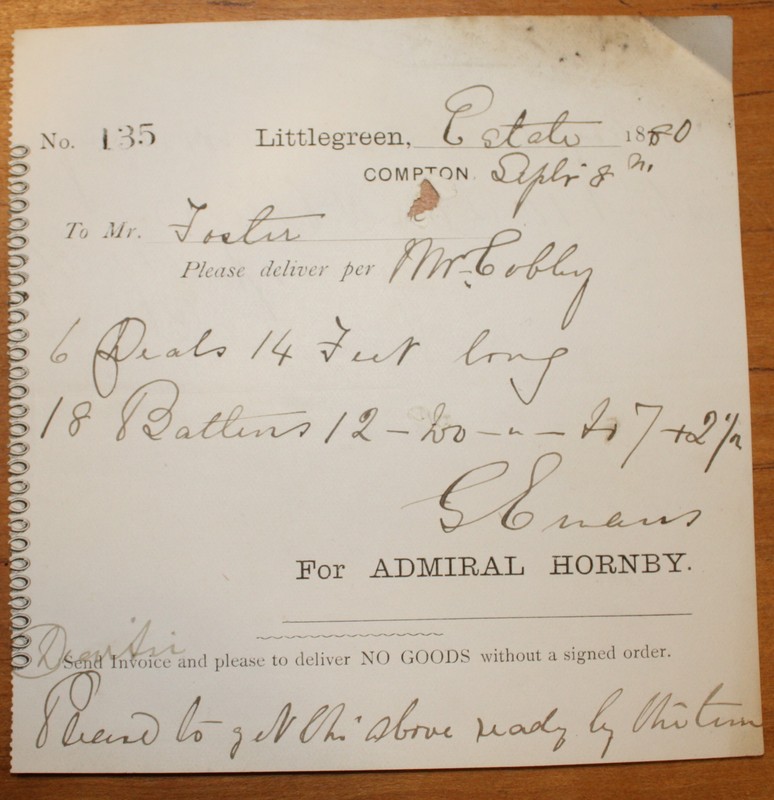 No. 135 Littlegreen, Estate 1880
COMPTON. Septr 8th.
To Mr. Foster
Please deliver per Mr. Cobby
6 Deals 14 Feet long
18 Battens 12 - Do - " - 7 x 2 1/2
G Evans
For ADMIRAL HORNBY.
Dear Sir
Send Invoice and please to deliver NO GOODS without a signed order.
Please to get the above ready by the time